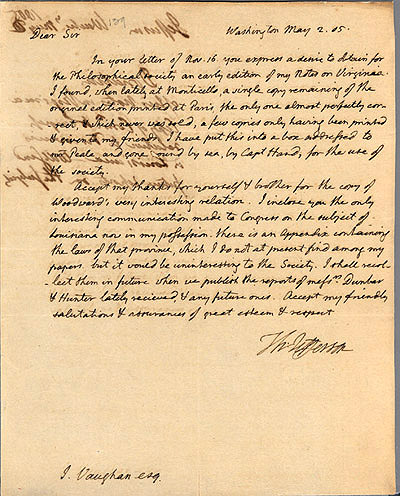 Washington May 2. 05.
Dear Sir
In your letter of Nov. 16. you express a desire to obtain for
the Philosophical society an early edition of my Notes on Virginia.
I found, when lately at Monticello, a single copy remaining of the
original edition printed at Paris the only one almost perfectly cor-
rect, & which never was sold, a few copies only having been printed
& given to my friends. I have put this into a box addressed to
mr Peale, and gone round by sea, by Capt Hand, for the use of
the society.
Accept my thanks for yourself & brother for the copy of
Woodward's very interesting relation. I inclose you the only
interesting communication made to Congress on the subject of
Louisiana now in my possession. there is an Appendix containing
the laws of that province, which I do not at present find among my
papers. but it would be uninteresting to the Society. I shall recol-
lect them in future when we publish the reports of messrs Dunbar
& Hunter lately recieved, & any future ones. Accept my friendly
salutations & assurances of great esteem & respect
Th: Jefferson
J. Vaughan esq.